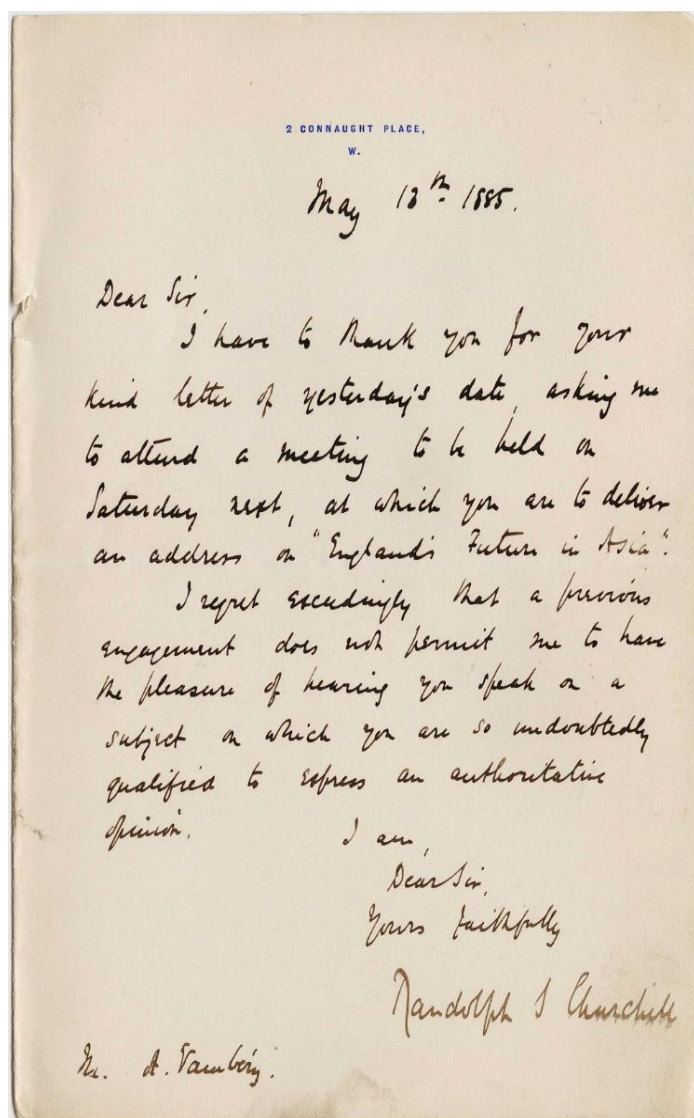 2 CONNAUGHT PLACE,
W.
May 13th 1885.
Dear Sir,
I have to thank you for your
kind letter of yesterday's date, asking me
to attend a meeting to be held on
Saturday next, at which you are to deliver
an address on "England's Future in Asia".
I regret exceedingly that a previous
engagement does not permit me to have
the pleasure of hearing you speak on a
subject on which you are so undoubtedly
qualified to express an authoritative
opinion.
I am,
Dear Sir,
Yours faithfully
Randolph S Churchill
A. Vambéry.